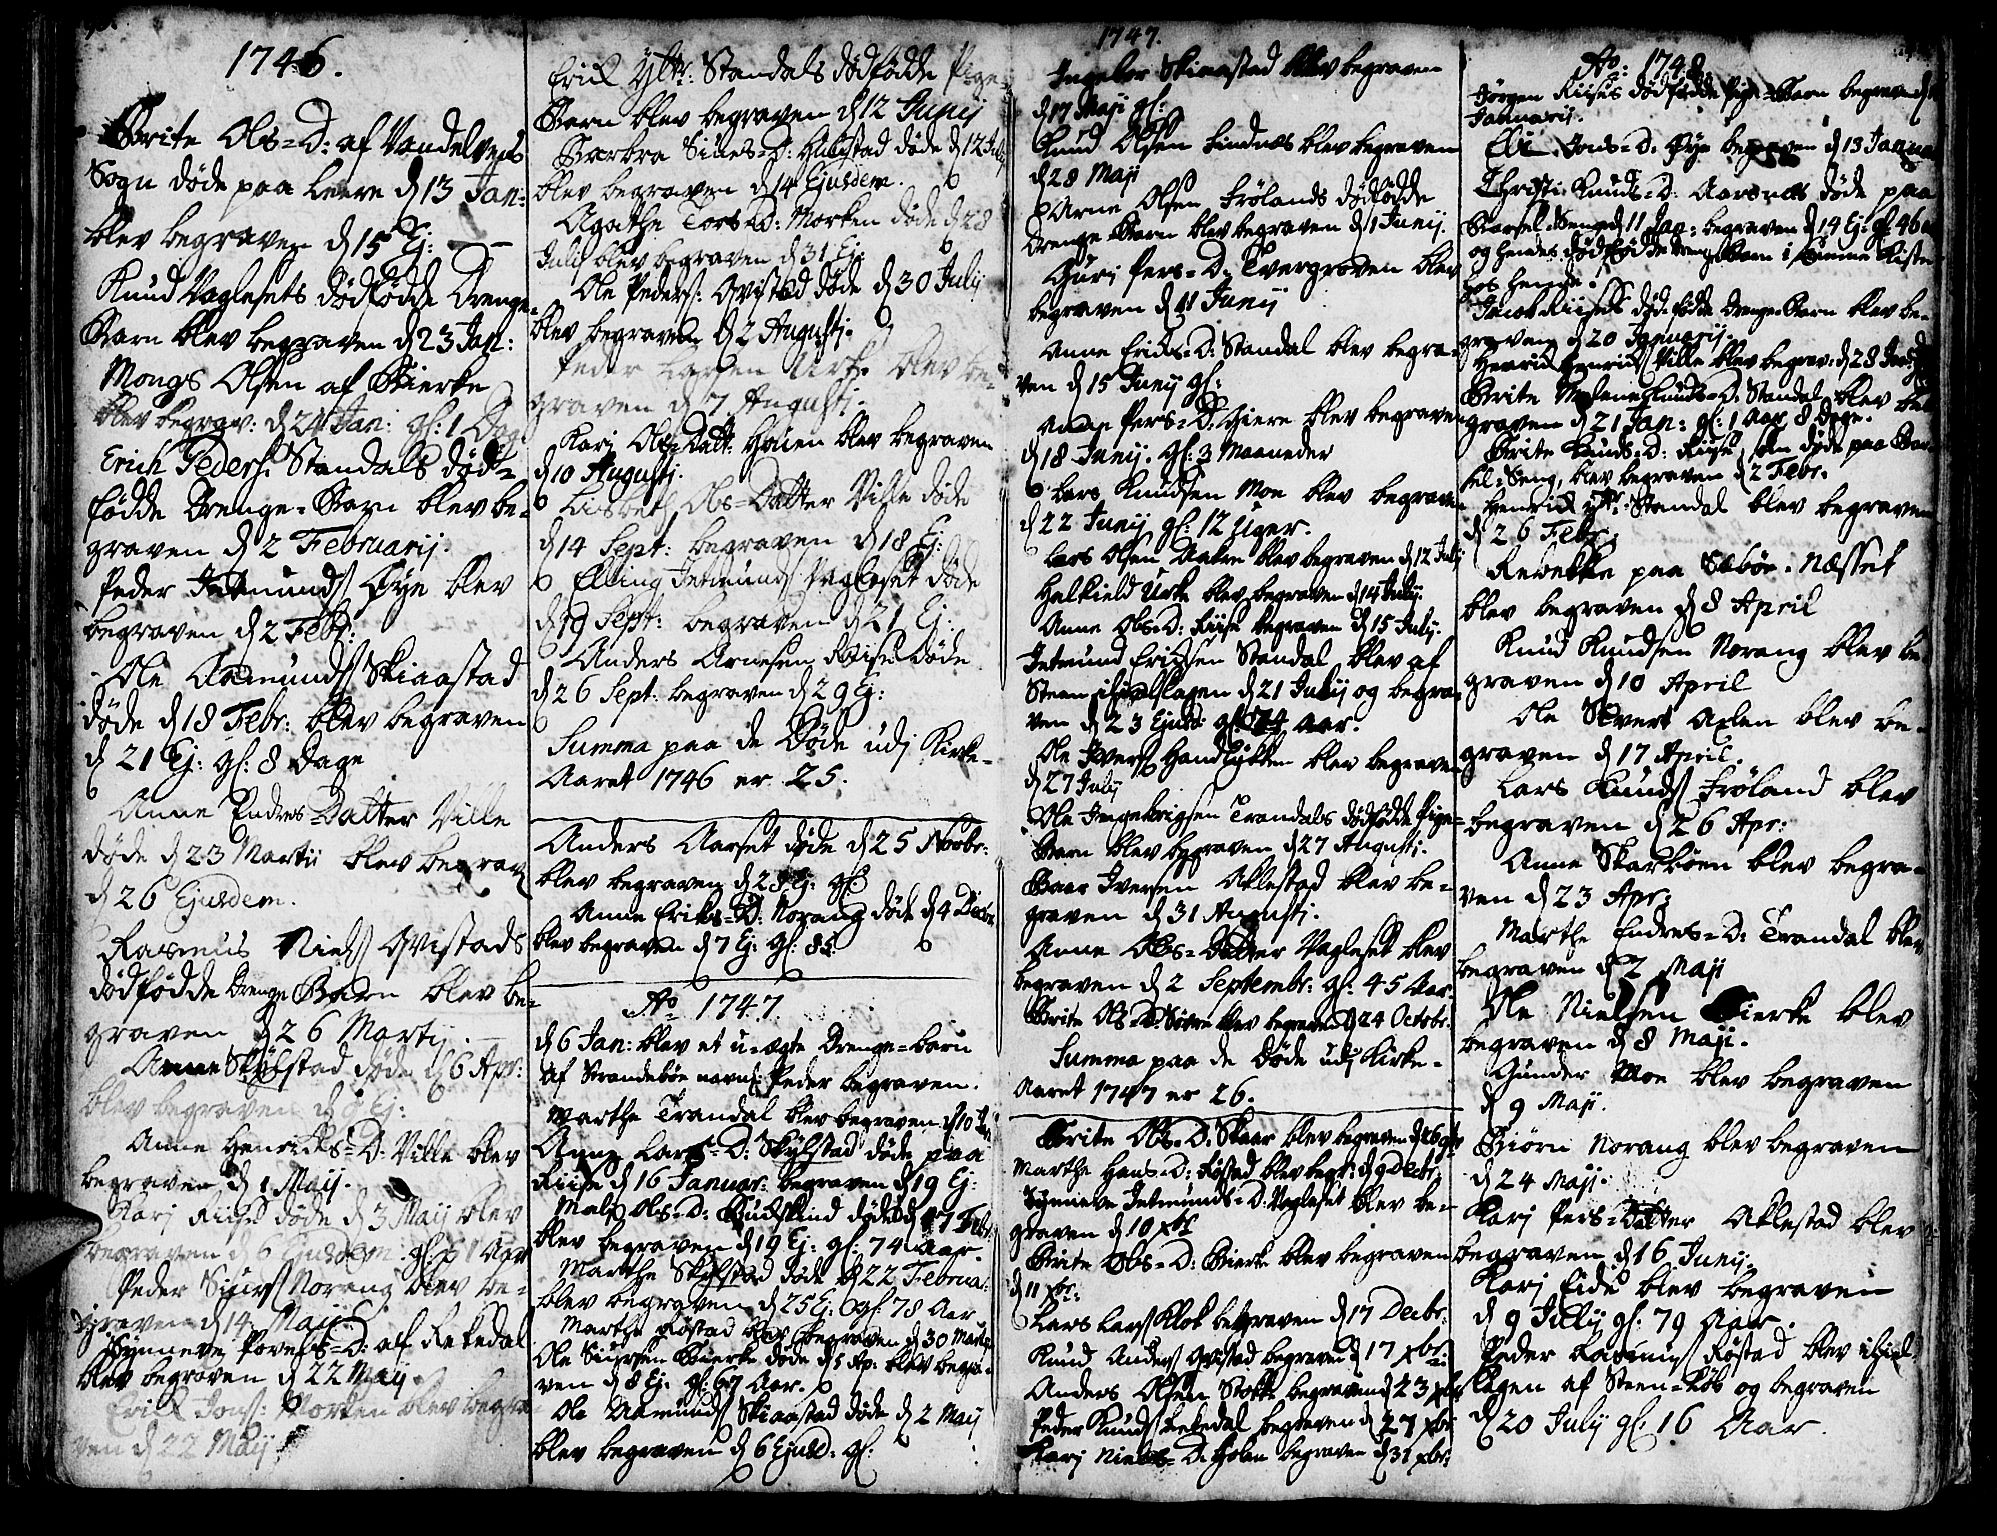 1746.
Brite Ols=D: af Vandelvens
Sogn døde paa Leere d 13 Jan:
blev begraven d 15 Ej:
Knud Vaglesets dødfødde Drenge
Barn blev begraven d 23 Jan:
Mongs Olsen af Bierke
blev begrav: d 24 Jan: gl: 1 Dag
Erich Peders: Standals død=
fødde Drenge=Barn blev be=
graven d 2 Februarij.
Peder Jetmunds Øye blev
begraven d 2 Febr:
Ole Aamunds Skiaastad
døde d 18 Febr: blev begraven
d 21 Ej: gl: 8 Dage
Anne Endres=Datter Ville
døde d 23 Martii blev begrav
d 26 Ejusdem.
Rasmus Niels Qvistads
dødfødde Drenge Barn blev be=
graven d 26 Martij.
Anne Skylstad døde d 6 Apr:
blev begraven d 9 Ej:
Anne Henrichs=D: Ville blev
begraven d 1 Maij.
Karj Riise døde d 3 Maij blev
begraven d 6 Ejusdem gl: 61 Aar
Peder Siurs Norang blev be=
graven d 14 Maij
Synneve Povels=D: af Rekedal
blev begraven d 22 Maij.
Erich Jons: Morken blev begra=
ven d 22 Maij.
Erich Yltr: Standals dødfødde Pige=
Barn blev begraven d 12 Junij
Barbra Siurs=D: Hustad døde d 12 July
blev begraven d 14 Ejusdem.
Agathe Tors=D: Morken døde d 28
Julij blev begraven d 31 Ej:
Ole Peders: Qvistad døde d 30 July
blev begraven d 2 Augusti.
Peder Larsen Urke blev be=
graven d 7 Augusti.
Karj Ols=Datt: Houen blev begraven
d 10 Augusti.
Lisbeth Ols=Datter Ville døde
d 14 Sept: begraven d 18 Ej:
Elling Jetmunds Vagleset døde
d 19 Sept: begraven d 21 Ej:
Anders Arnesen Riise døde
d 26 Sept: begraven d 29 Ej:
Summa paa de Døde udj Kirke=
Aaret 1746 er 25.
Anders Aarset døde d 25 Novbr:
blev begraven d 28 Ej: gl:
Anne Eriks=D: Norang døde d 4 Decbr
blev begraven d 7 Ej: gl: 85
Ao 1747.
d 6 Jan: blev et u=ægte Drenge=barn
af Strandebøe navnl: Peder begraven.
Marthe Trandal blev begraven d 10 Jan
Anne Lars=D: Skylstad døde paa
Riise d 16 Januar: begraven d 19 Ej:
Mali Ols=D: Budskind døde d 17 Febr
blev begraven d 19 Ej: gl: 74 Aar.
Marthe Skylstad døde d 22 Februa:
blev begraven d 25 Ej: gl: 78 Aar
Marthe Røstad blev begraven d 30 Martii
Ole Siursen Bierke døde d 5 Ap: blev begra=
ven d 8 Ej: gl: 67 Aar.
Ole Aamunds Skiaastad døde d 2 Maij
blev begraven d 6 Ejusd: gl:
1747.
Ingebor Skiaastad blev begraven
d 17 Maji gl:
Knud Olsen Lindnes blev begraven
d 28 Maji
Arne Olsen Frølands dødfødde
Drenge Barn blev begraven d 1 Junij.
Gurj Pers=D: Tvergroven blev
begraven d 11 Junij
Anne Eriks=D: Standal blev begra=
ven d 15 Junij gl:
Anne Pers=D: Giere blev begraven
d 18 Junij. gl: 3 Maaneder
Lars Knudsen Moe blev begraven
d 22 Junij gl: 12 Uger.
Lars Olsen Aakre blev begraven d 12 July
Halkield Urke blev begraven d 14 July.
Anne Ols=D: Riise begraven d 15 July.
Jetmund Erichsen Standal blev af
Steen ihielslagen d 21 Julij og begra=
ven d 23 Ejusd: gl: 74 Aar.
Ole Ivers Handlykken blev begraven
d 27 July
Ole Ingebrigsen Trandals dødfødde Pige=
Barn blev begraven d 27 Augusti.
Baar Iversen Aklestad blev be=
graven d 31 Augusti.
Anne Ols=Datter Vagleset blev
begraven d 2 Septembr: gl: 45 Aar.
Brite Ols=D: Sovre blev begraven d 24 Octobr.
Summa paa de Døde udj Kirke=
Aaret 1747 er 26.
Brite Ols=D: Skaar blev begraven d 26 9br
Marthe Hans=D: Røstad blev begr: d 9 Decbr
Synneve Jetmunds=D: Vagleset blev be=
graven d 10 Xbr
Brite Ols=D: Bierke blev begraven
d 11 Xbr:
Lars Lars Klok begraven d 17 Decbr:
Knud Anders Qvistad begraven d 17 Xbr:
Anders Olsen Stokke begraven d 23 Xbr
Peder Knuds Rekedal begraven d 27 Xbr
Karj Niels=D: Holen begraven d 31 Xbr:
Ao: 1748
Jørgen Riises dødfødde Pige=Barn begraven d
Januarij.
Eli Jons=D. Øye begraven d 13 Januar
Christi Knuds=D: Aarsnes døde paa
Barsel=Seng d 11 Jan: begraven d 14 Ej: gl: 46 Aar
og hendes dødfødde Drenge Barn i samme Kiste
hos hende.
Jacob Riises død-fødde Drenge-Barn blev be=
graven d 20 Januarij.
Henrich Henrichs Ville blev begrav: d 28 Jan:
Brite Knuds=D: Standal blev be=
graven d 21 Jan: gl: 1 Aar 8 Dage.
Brite Knuds=D: Riise, som døde paa Bar=
sel=Seng, blev begraven d 2 Febr.
Henrich Standal blev begraven
d 26 Febr:
Rebekke paa Sæbøe=Næsset
blev begraven d 8 April
Knud Knudsen Norang blev be=
graven d 10 April
Ole Skvert Axlen blev be=
graven d 17 April.
Lars Knuds Frøland blev
begraven d 26 Apr:
Anne Skarbøen blev begra=
ven d 23 Apr:
Marthe Endres=D: Trandal blev
begraven d 2 Maji
Ole Nielsen Bierke blev
begraven d 8 Maji.
Gunder Moe blev begraven
d 9 Maji.
Biørn Norang blev begraven
d 24 Maji.
Karj Pers=Datter Aklestad blev
begraven d 16 Junij.
Karj Eide blev begraven
d 9 Julij gl: 79 Aar.
Peder Rasmus Røstad blev ihiel=
slagen af Steen=Røs og begraven
d 20 July gl: 16 Aar.